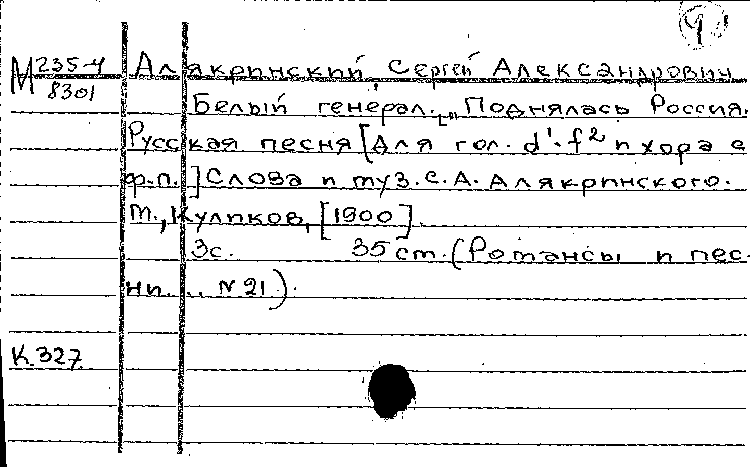 9
М 235-4 Алякринский, Сергей Александрович
8301
Белый генерал. „Поднялась Россия.
Русская песня [Для гол. d'-f² и хора с
ф.п.] Слова и муз. С.А. Алякринского.
М., Куликов, [1900].
3с. 35 cm. (Романсы и пес-
ни ... N 21).
К.327